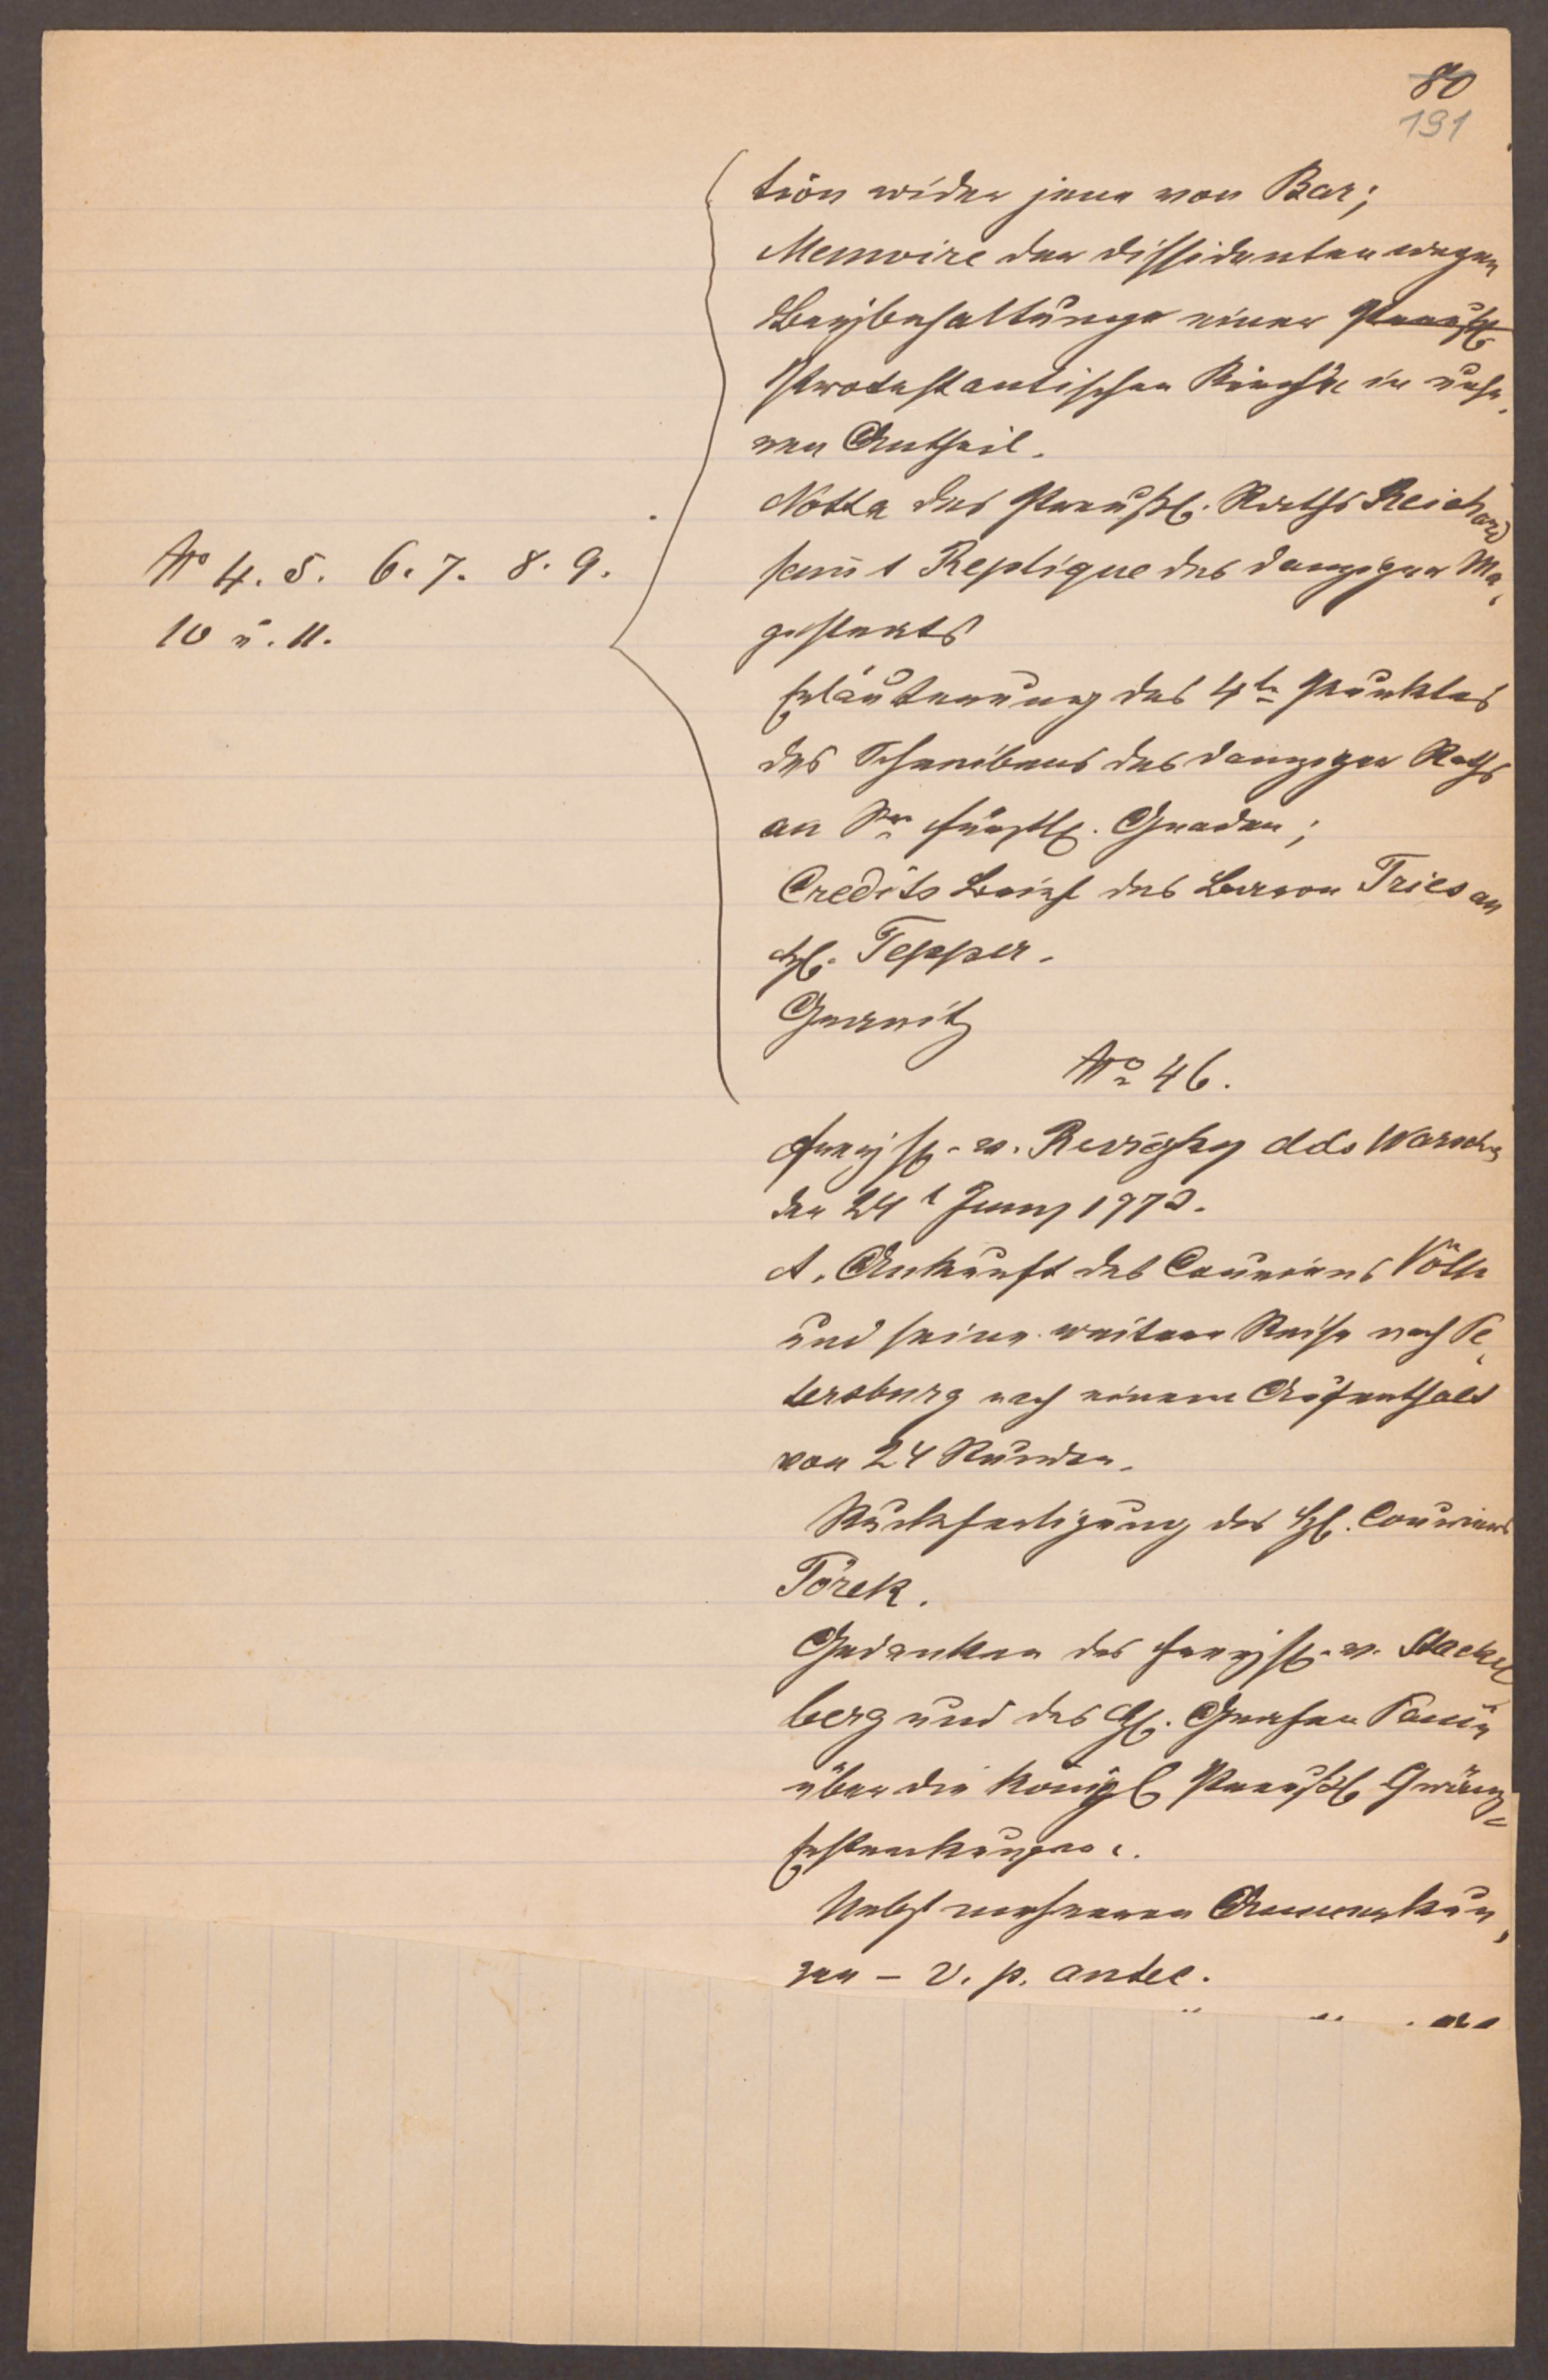 80
191
tion wider jene von Bar;
Memoire der Dissidenten wegen
Beybehaltunge einer Preußl.
Protestantischen Kirche in unse,
ren Antheil.
Notta des Preußl. Raths Reichard
sam̄t Replique des Danziger Ma,
gistrats
No 4. 5. 6. 7. 8. 9.
10 u. 11.
Erläuterung des 4ten Punktes
des Schreibens des Danziger Raths
an Sr fürstl. Gnaden;
Credits Brief des Baron Fries an
H. Tepper.
No 46.
Freyh. v. Reviczky ddo Warschau
den 24t Juny 1773.
A. Ankunft des Couriers
und seine weitere Reise nach Pe,
tersburg nach einem Aufenthalt
von 24 Stunden.
Rückfertigung des H. Couriers
Törek.
Gedanken des Freyh. v. Stackel
berg und des H. Grafen Panin
über die Königl Preußl Gränz=
Erstreckungen.
Nebst mehreren Anmerkun,
gen – v. p. antec.